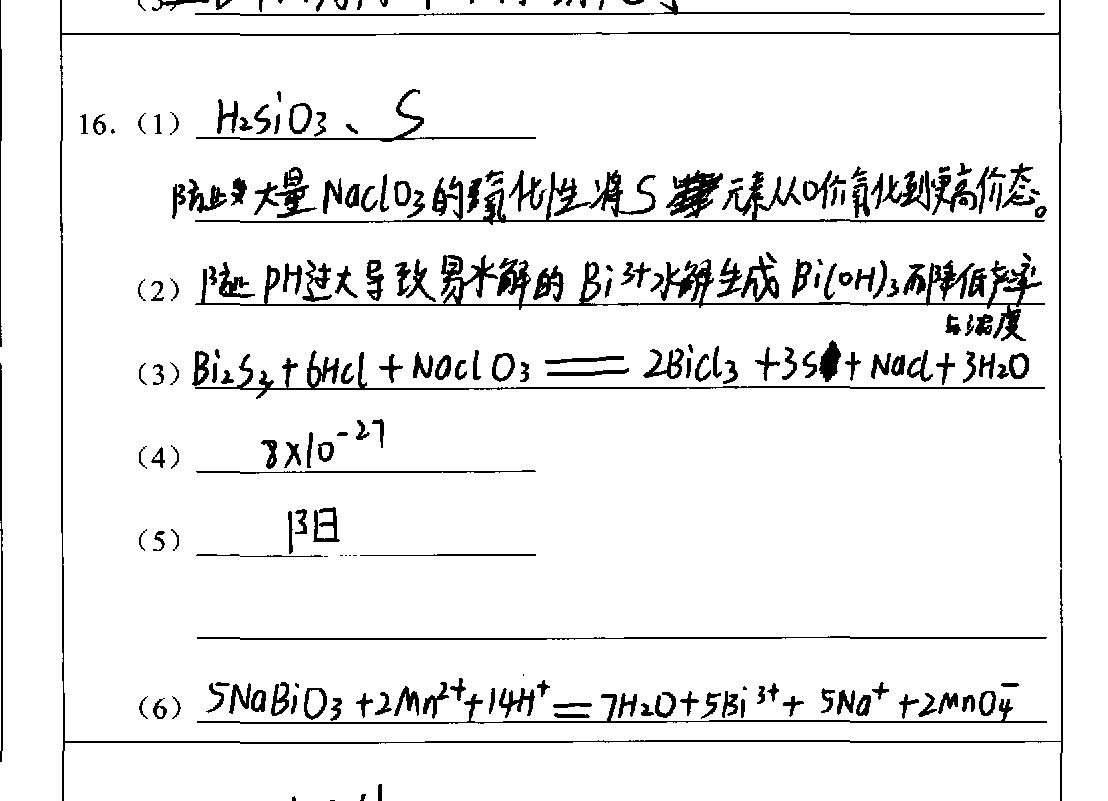 16. (1) H₂SiO₃、S
防止大量NaClO₃的氧化性将S元素从0价氧化到更高价态。
(2) 防止PH过大导致易水解的Bi³⁺水解生成Bi(OH)₃而降低产率
与浓度
(3) Bi₂S₃+6HCl+NaClO₃══2BiCl₃+3S+NaCl+3H₂O
(4) 8×10⁻²⁷
(5) 阳
(6) 5NaBiO₃+2Mn²⁺+14H⁺=7H₂O+5Bi³⁺+5Na⁺+2MnO₄⁻